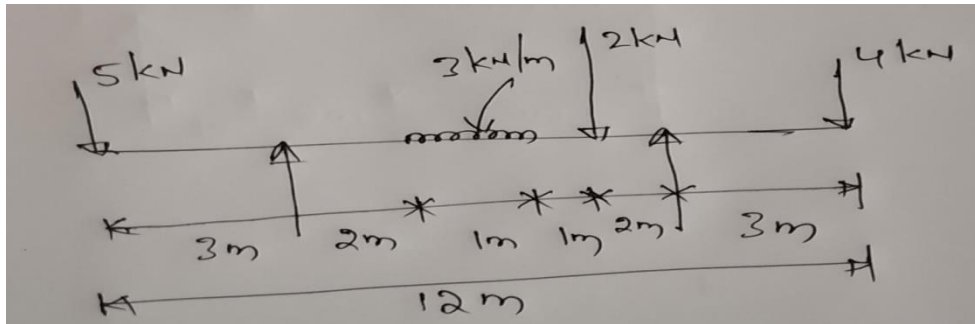 5 kN 3 kN/m 2 kN 4 kN
3m 2m 1m 1m 2m 3m
12 m